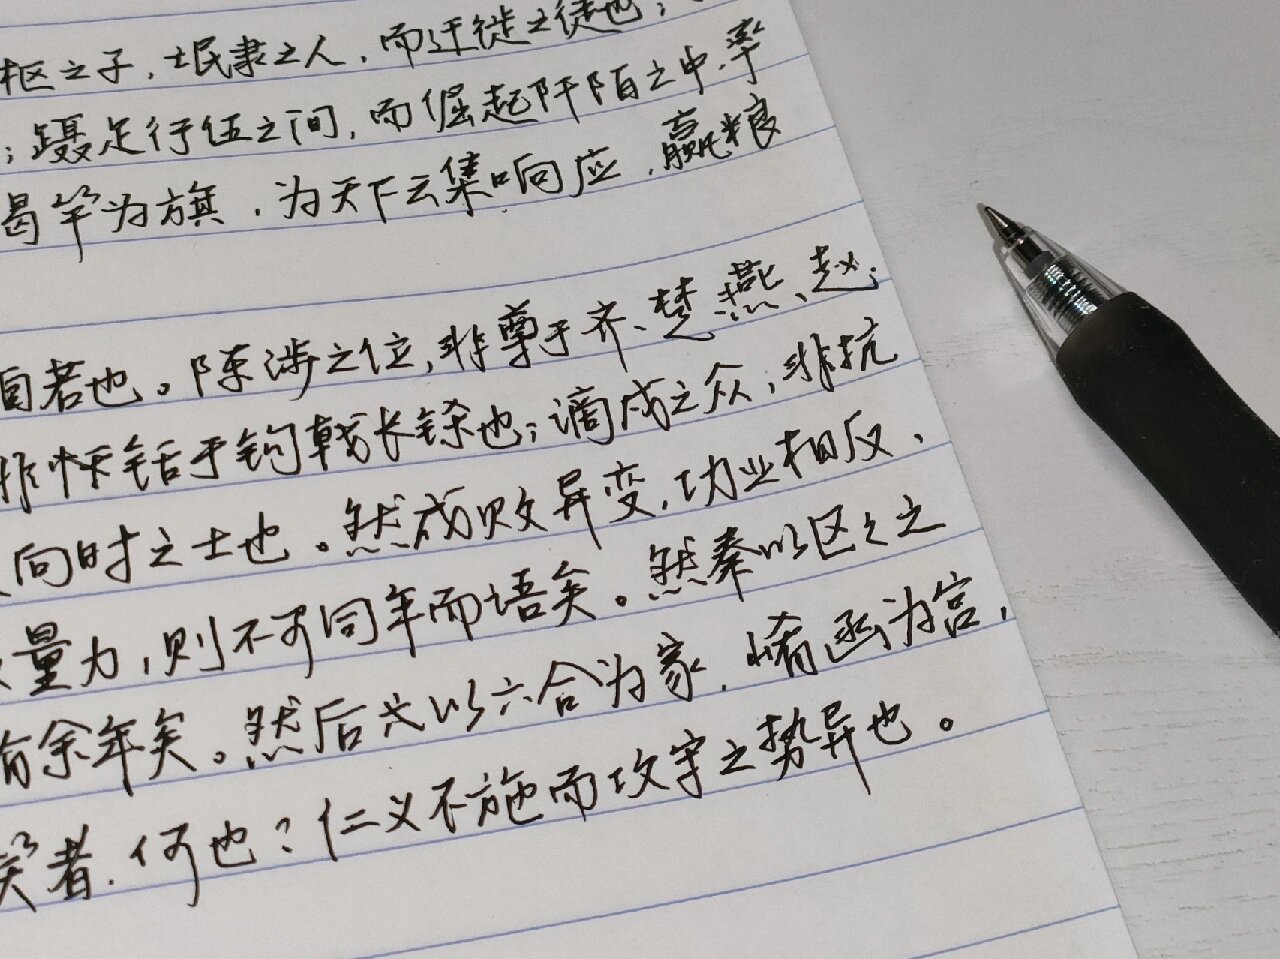 枢之子，氓隶之人，而迁徙之徒也；
；蹑足行伍之间，而倔起阡陌之中，率
揭竿为旗，为天下云集响应，赢粮
自若也。陈涉之位，非尊于齐、楚、燕、赵、
非铦于钩戟长铩也；谪戍之众，非抗
向时之士也。然成败异变，功业相反、
量力，则不可同年而语矣。然秦以区区之
有余年矣。然后以六合为家，崤函为宫，
笑者，何也？仁义不施而攻守之势异也。